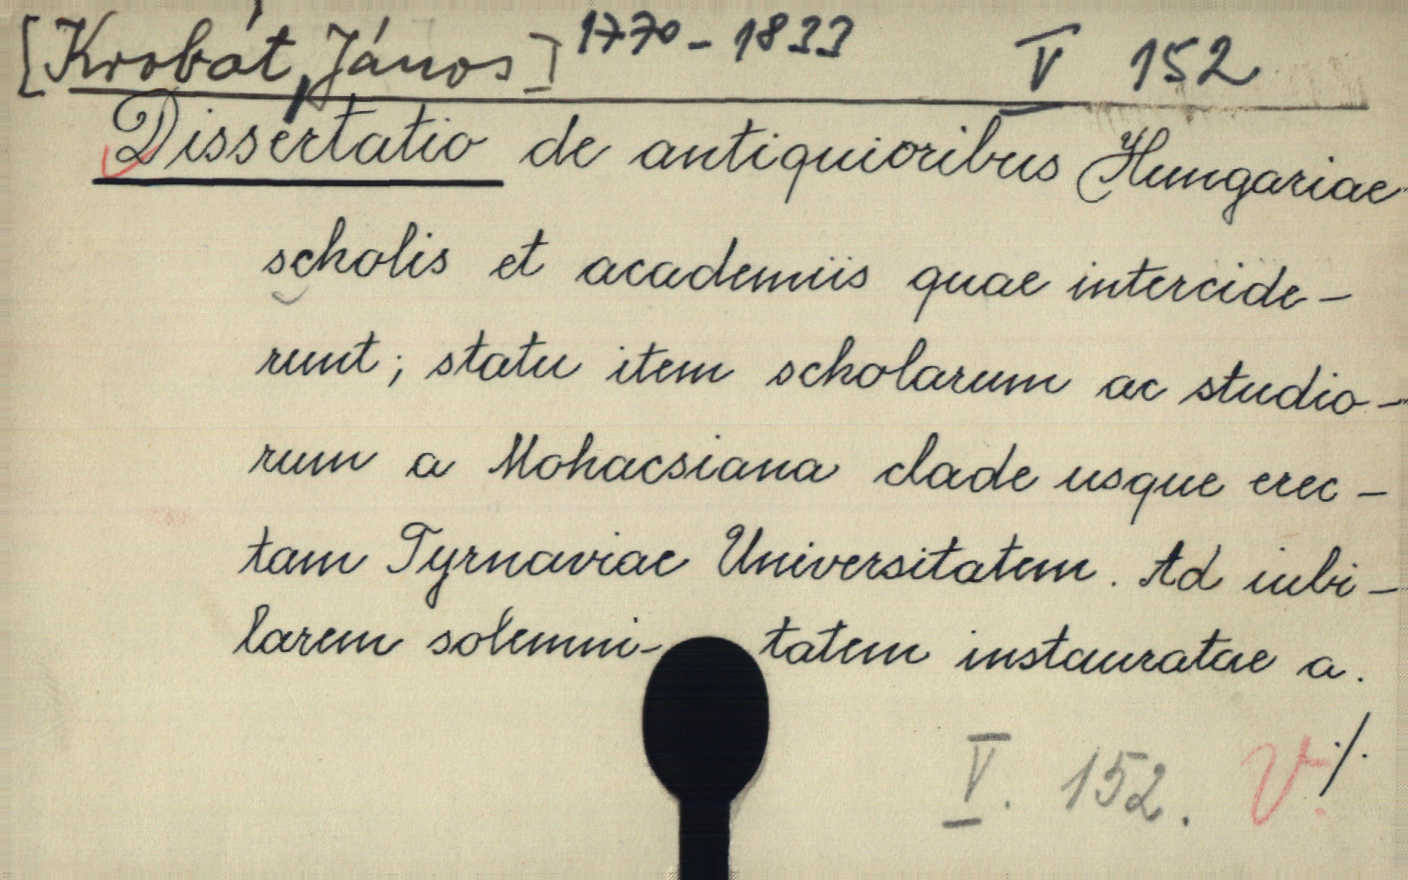 [Krobát, János] 1770-1833 V 152
Dissertatio de antiquioribus Hungariae
scholis et academiis quae intercide-
runt; statu item scholarum ac studio-
rum a Mohacsiana clade usque erec-
tam Tyrnaviae Universitatem. Ad iubi-
larem solemni- tatem instauratae a.
V. 152. V. ./.